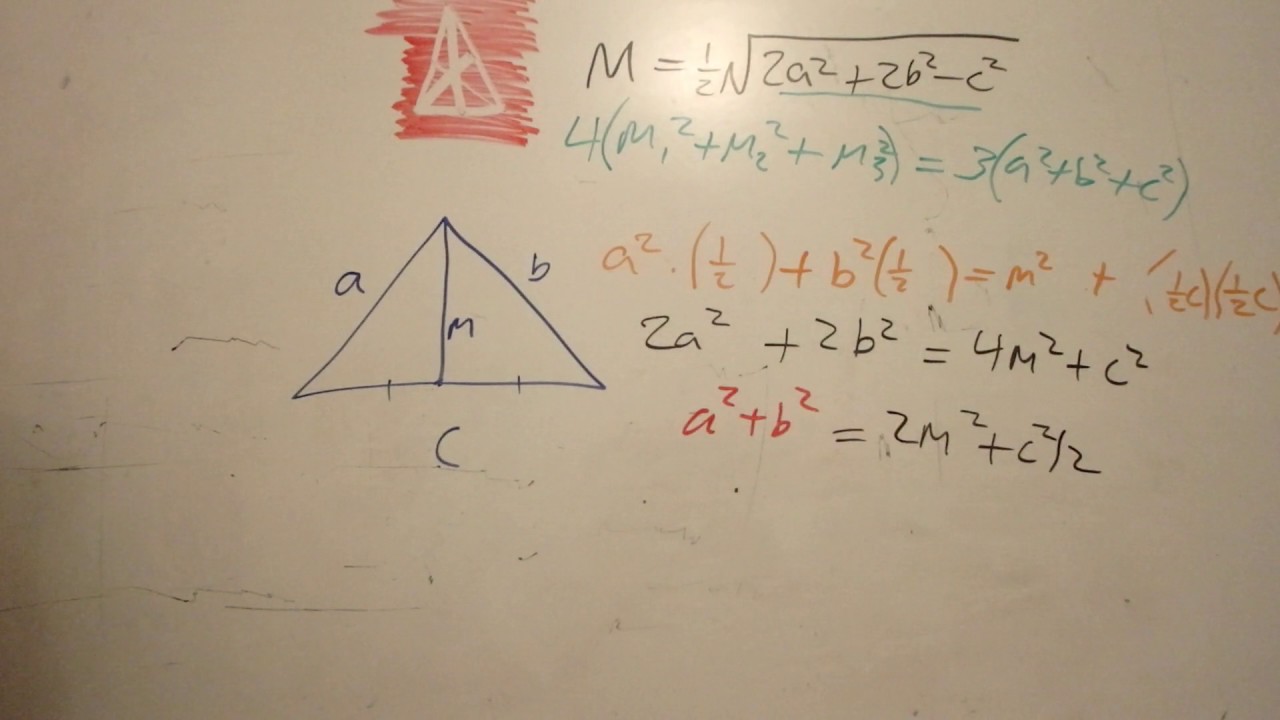 M = ½√2a²+2b²-c²
4(M₁²+M₂²+M₃²) = 3(a²+b²+c²)
a²·(½ )+b²(½ )=m² + (½c)(½c)
a
b
M
C
2a² + 2b² = 4M²+c²
a²+b² = 2M²+c²/2